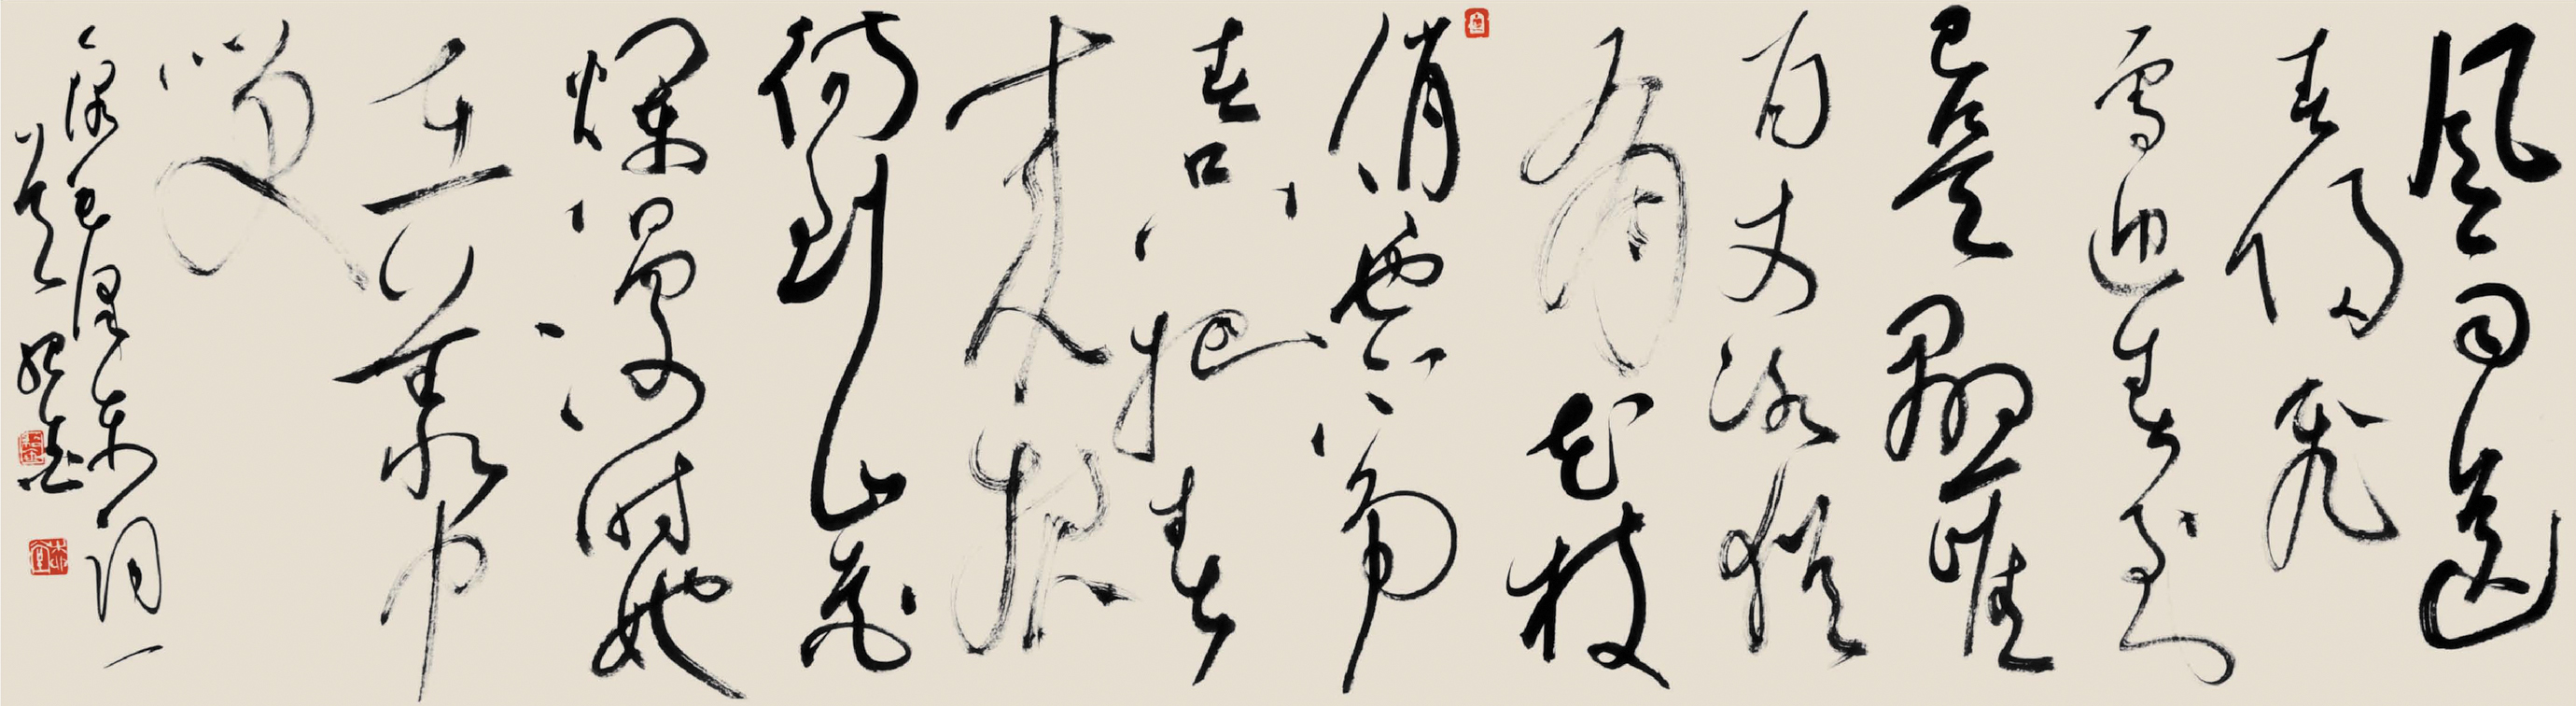 風雨送
春歸飛
雪迎春到
已是懸崖
百丈冰猶
有花枝
俏也不爭
春只把春
来報
待到山花
爛漫時她
在叢中
笑
錄毛澤東詞一